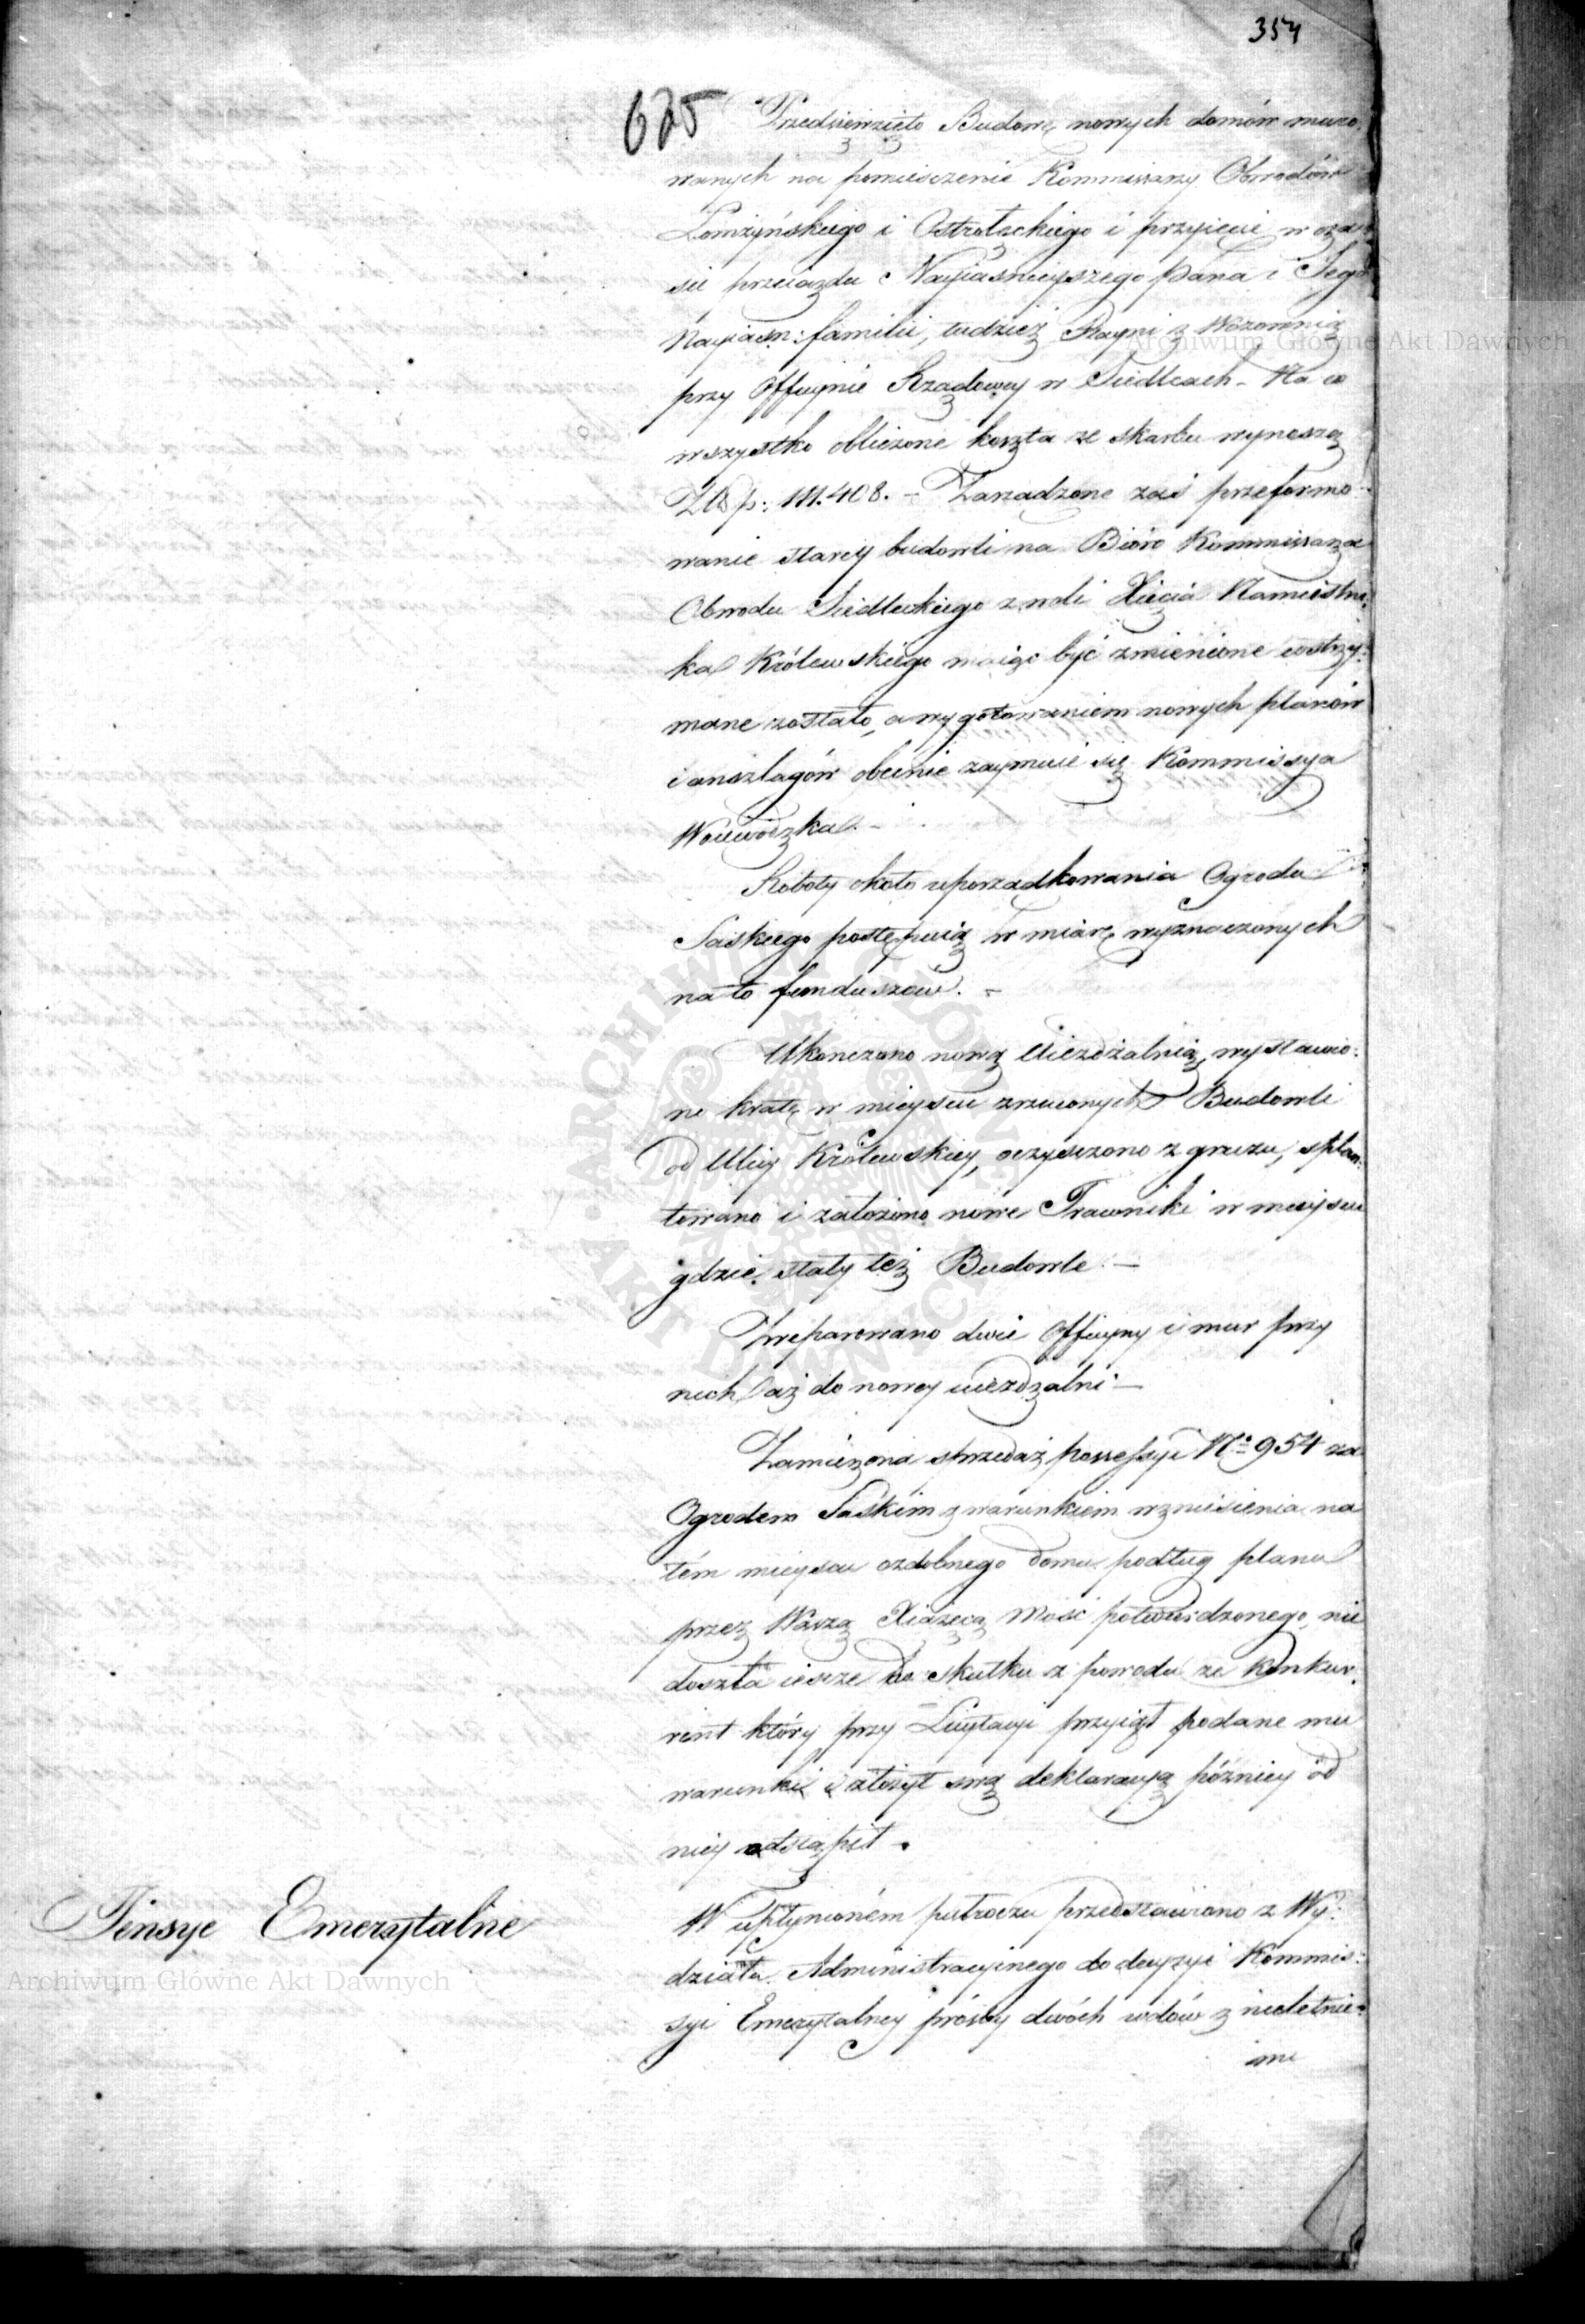 354
625
Przedsięwzięto Budowę nowych domów muro:
wanych na pomieszczenie Kommissarzy Obwodów
Łomżyńskiego i Ostrołęckiego i przyięcie w cza:
sie przeiazdu Nayiasnieyszego Pana i Jego
Nayiaśn: familii, tudzież Stayni z Wozownią
przy Officynie Rządowey w Siedlcach - Na co
wszystko obliczone koszta ze skarbu wynoszą
Złł p: 111.408. - Zarządzone zaś przeformo:
wanie starey budowli na Bióro Kommissarza
Obwodu Siedleckiego z woli Xięcia Namiestni:
ka Królewskiego maiąc być zmienione wstrzy:
mane zostało, a wygotowaniem nowych planów
i anszlagów obecnie zaymuie się Kommissya
Woiewódzka. -
Roboty około uporządkowania Ogrodu
Saskiego postępuią w miarę wyznaczonych
na to funduszów. -
Ukonczono nową Uieżdżalnią, wystawio:
no kratę w mieyscu zrzuconych Budowli
od Ulicy Królewskiey, oczyszczono z gruzu, splan:
towano i założono nowe Trawniki w mieyscu
gdzie stały też Budowle. -
Zreparowano dwie Officyny i mur przy
nich aż do nowey uieżdżalni -
Zamierzona sprzedaż possessyi No 954 za
Ogrodem Saskim z warunkiem wzniesienia na
tém mieyscu ozdobnego domu podług planu
przez Waszą Xiążęcą Mość potwierdzonego, nie
doszła iescze do skutku z powodu ze Konkur:
rent który przy Licytacyi przyiął podane mu
warunki i złożył swą deklaracyą późniey od
niey odstąpił.
Pensye Emerytalne
W upłynioném półroczu przedstawiono z Wy:
działu Administracyinego do decyzyi Kommis:
syi Emerytalney prośby dwóch wdów z nieletnie:
mi
Archiwum Główne Akt Dawnych
Archiwum Główne Akt Dawnych
ARCHIWUM GŁÓWNE AKT DAWNYCH